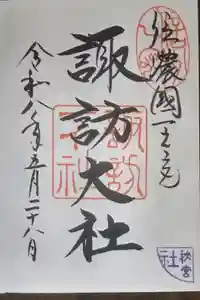 信濃國一之宮
諏訪大社
諏訪大社
令和八年五月二十八日
秋宮
社